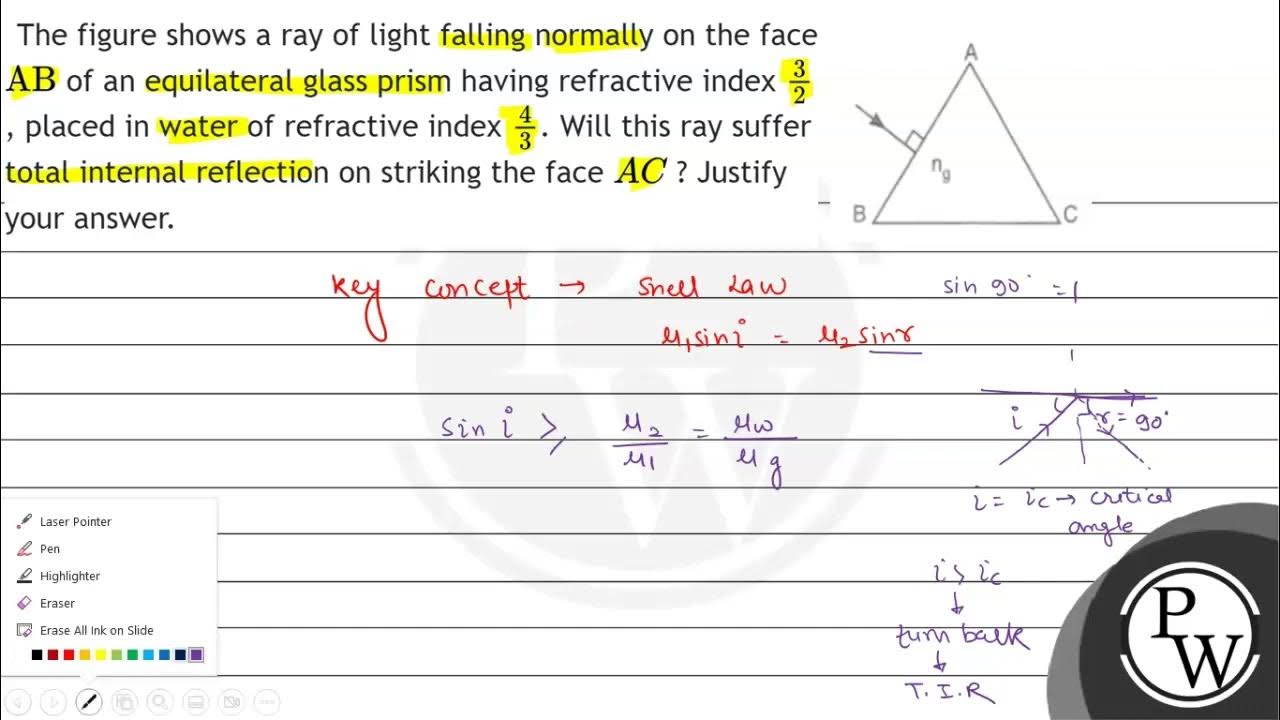 The figure shows a ray of light falling normally on the face
AB of an equilateral glass prism having refractive index 3/2
, placed in water of refractive index 4/3. Will this ray suffer
total internal reflection on striking the face AC ? Justify
your answer.
A
n_g
B
C
Key concept → Snell Law
sin 90° = 1
μ₁ sin i = μ₂ sin r
sin i ≥ μ₂/μ₁ = μw/μg
i
r = 90°
i = ic → critical
angle
i > ic
↓
turn back
↓
T. I. R
Laser Pointer
Pen
Highlighter
Eraser
Erase All Ink on Slide
P
W